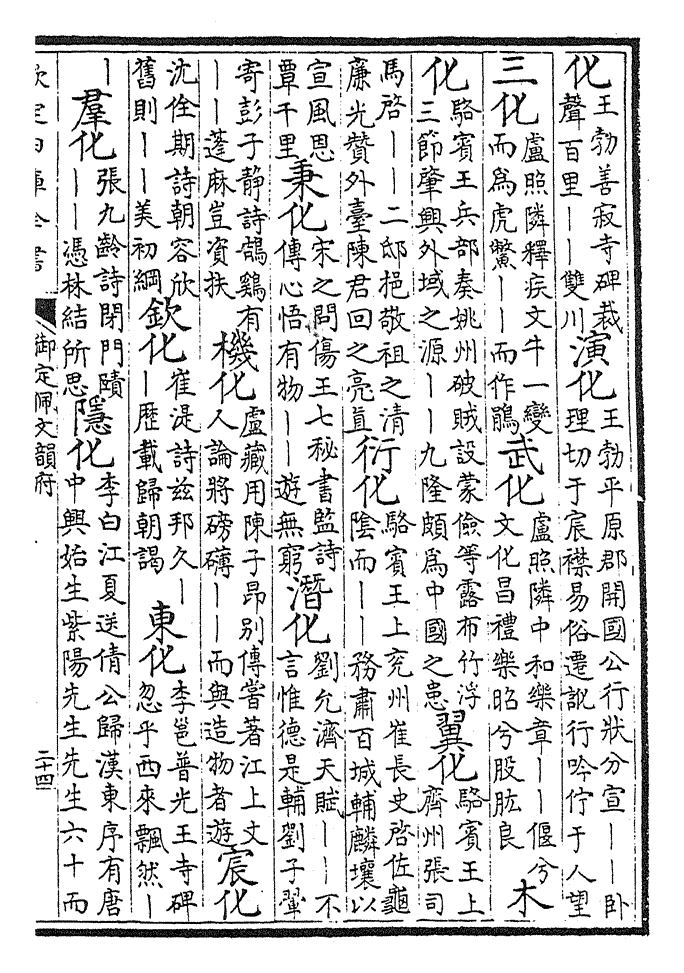 化王勃善寂寺碑裁聲百里——雙川演化王勃平原郡開國公行狀分宣——卧理切于宸襟易俗遷訛行吟佇于人望
三化盧照隣釋疾文牛一變而爲虎鱉——而作鵑武化盧照隣中和樂章——偃兮文化昌禮樂昭兮股肱良木
化駱賓王兵部奏姚州破賊設蒙儉等露布竹浮三節肇興外域之源——九隆頗爲中國之患翼化駱賓王上齊州張司
馬啓——二邸挹敬祖之清廉光贊外臺陳君回之亮直衍化駱賓王上兖州崔長史啓佐龜陰而——務肅百城輔麟壤以
宣風思覃千里秉化宋之問傷王七秘書監詩傳心悟有物——遊無窮潛化劉允濟天賦——不言惟德是輔劉子翬
寄彭子静詩鵠鷄有——蓬麻豈資扶機化盧藏用陳子昂别傳嘗著江上文人論將磅礴——而與造物者遊宸化
沈佺期詩朝容欣舊則——美初綱欽化崔湜詩兹邦久——歷載歸朝謁東化李邕普光王寺碑忽乎西來飄然—
—羣化張九齡詩閉門蹟——憑林結所思隱化李白江夏送倩公歸漢東序有唐中興始生紫陽先生先生六十而
欽定四庫全書
御定佩文韻府
二十四